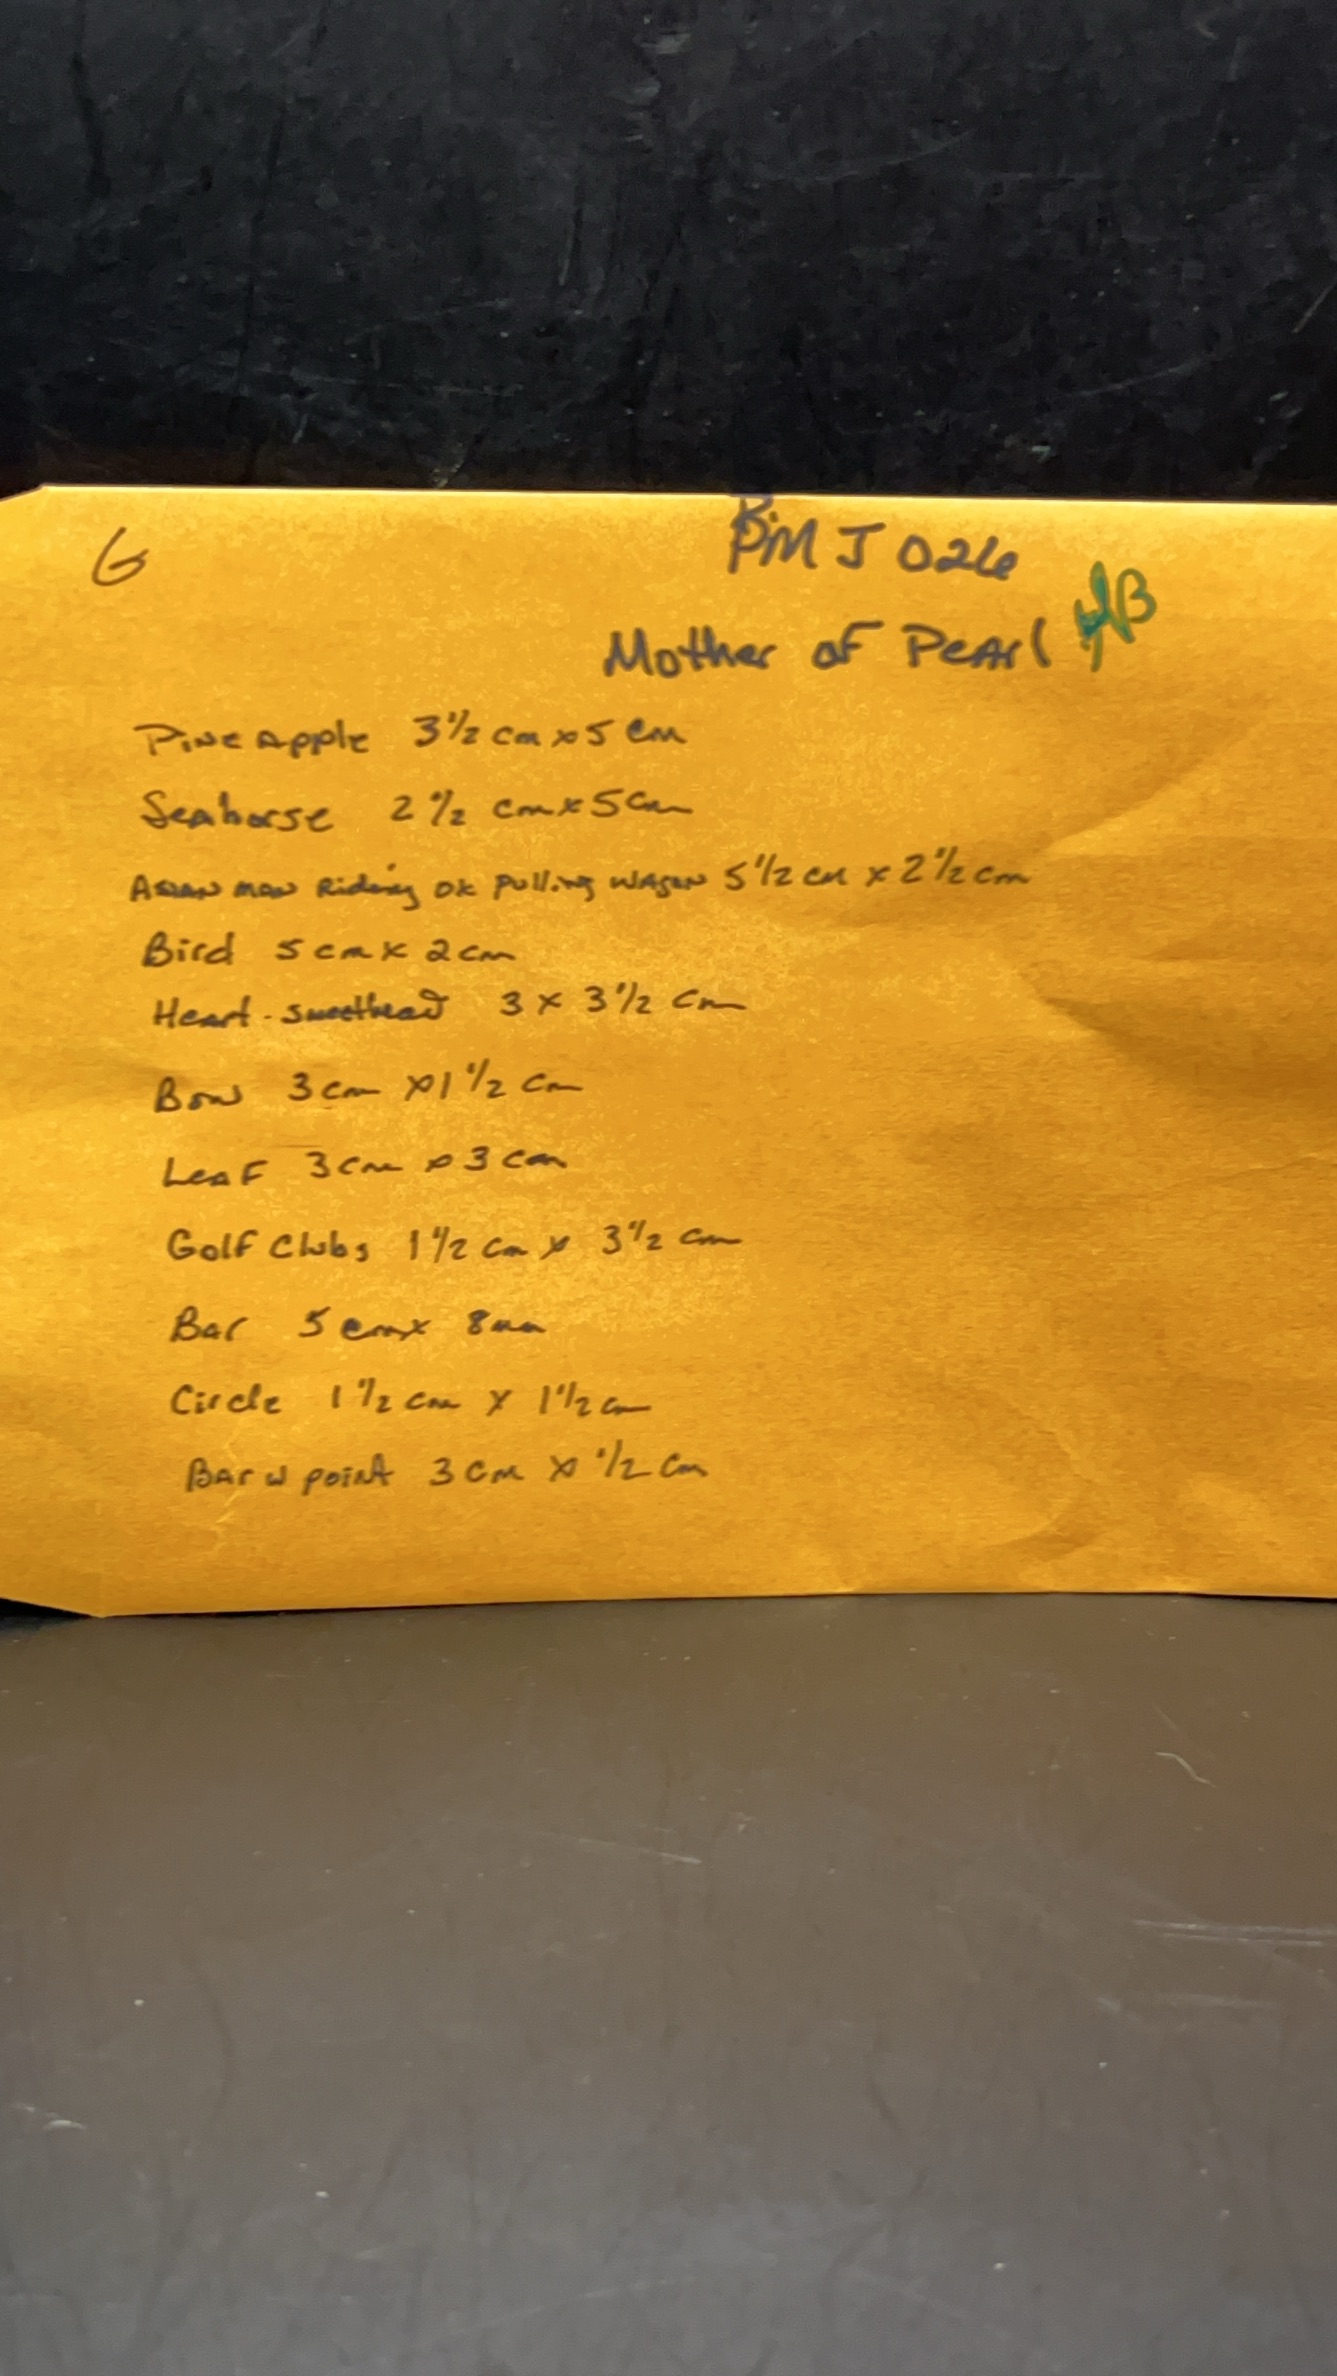 G
BMJ 026
Mother of Pearl
Pineapple 3 1/2 cm x 5 cm
Seahorse 2 1/2 cm x 5 cm
Asian man Riding ox pulling wagon 5 1/2 cm x 2 1/2 cm
Bird 5 cm x 2 cm
Heart - 3 x 3 1/2 cm
Bow 3 cm x 1 1/2 cm
Leaf 3 cm x 3 cm
Golf Clubs 1 1/2 cm x 3 1/2 cm
Bar 5 cm x 8 mm
Circle 1 1/2 cm x 1 1/2 cm
Bar w point 3 cm x 1/2 cm